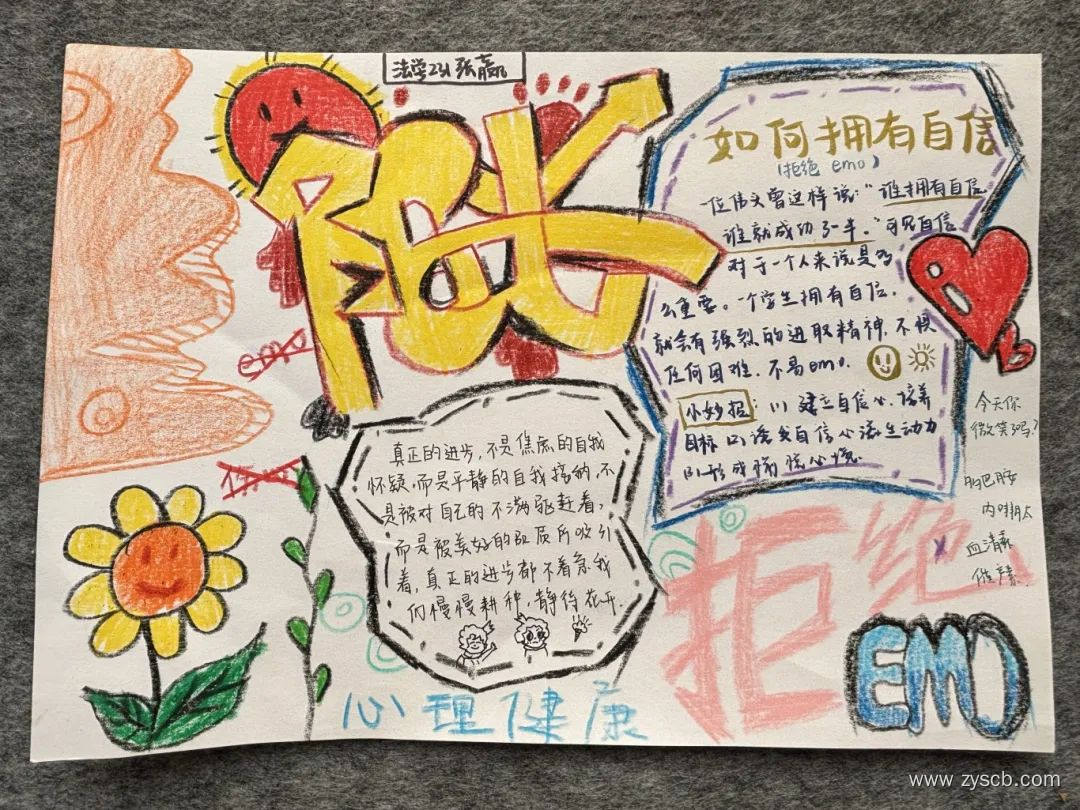 法学231张赢
阳光
emo
如何拥有自信
(拒绝 emo)
一位伟人曾这样说:“谁拥有自信
谁就成功了一半。”可见自信
对于一个人来说是多
么重要。一个学生拥有自信,
就会有强烈的进取精神,不惧
任何困难,不易emo。
小妙招:(1)建立自信心,培养
目标(2)诱发自信心滋生动力
(3)形成
今天你
微笑了吗?
多巴胺
内啡肽
血清素
催产素
真正的进步,不是焦虑的自我
怀疑,而是平静的自我接纳,不
是被对自己的不满驱赶着,
而是被美好的品质所吸引
着,真正的进步都不着急,我
们慢慢耕种,静待花开.
拒绝
EMO
心理健康
www.zyscb.com